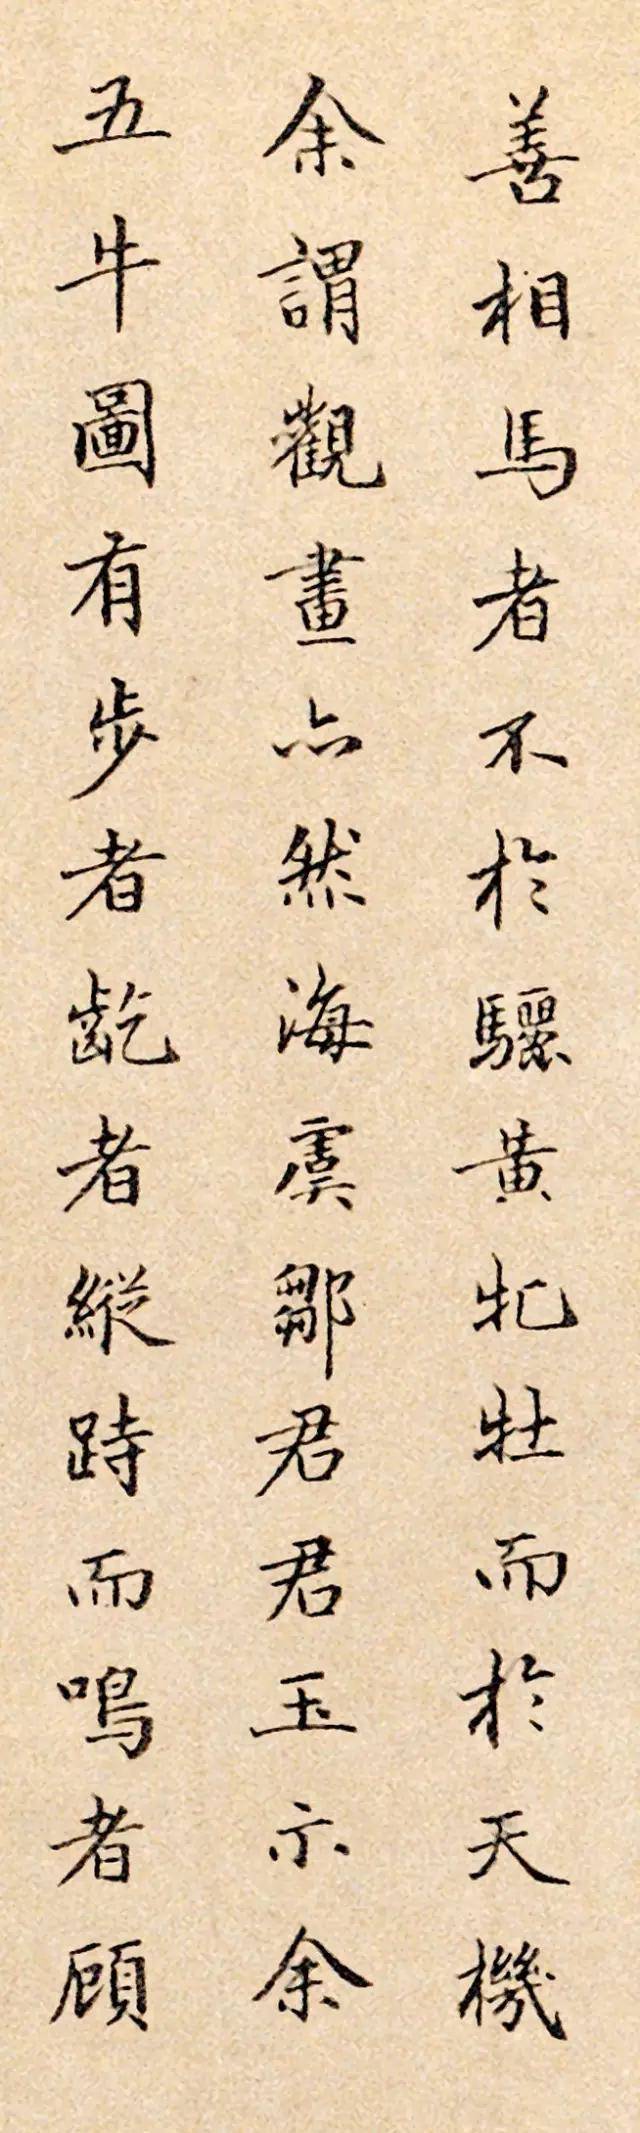 善相馬者不於驪黃牝牡而於天機
余謂觀畫亦然海虞鄒君君玉示余
五牛圖有步者齕者縱跱而鳴者顧